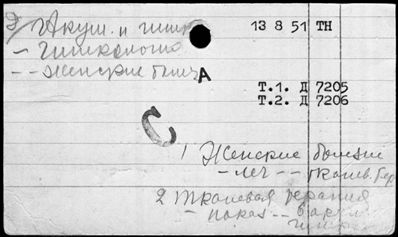 Акуш. и гинек
13 8 51 ТН
-- Гинекология
-- Женские болез
А
Т.1. Д 7205
Т.2. Д 7206
С
1 Женские болезни
-- леч -- тканев. тер
2 Тканевая терапия
-- показ -- в акуш.
гинек